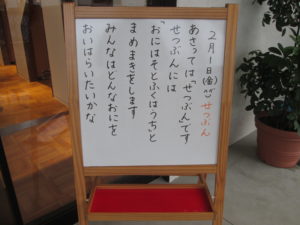 2月1日(金) せつぶん
あさっては「せつぶん」です
せつぶんには
「おにはそとふくはうち」と
まめまきをします
みんなはどんなおにを
おいはらいたいかな